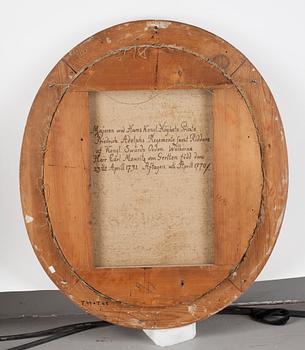 Majoren wid Hans Kongl. Höghets Prints
Friedrich Adolphs Regemente samt Riddare
af Kongl. Swärds Orden Wälborne
Herr Carl Mauritz von Gertten född den
23de April 1731 Aftagen uti April 1779